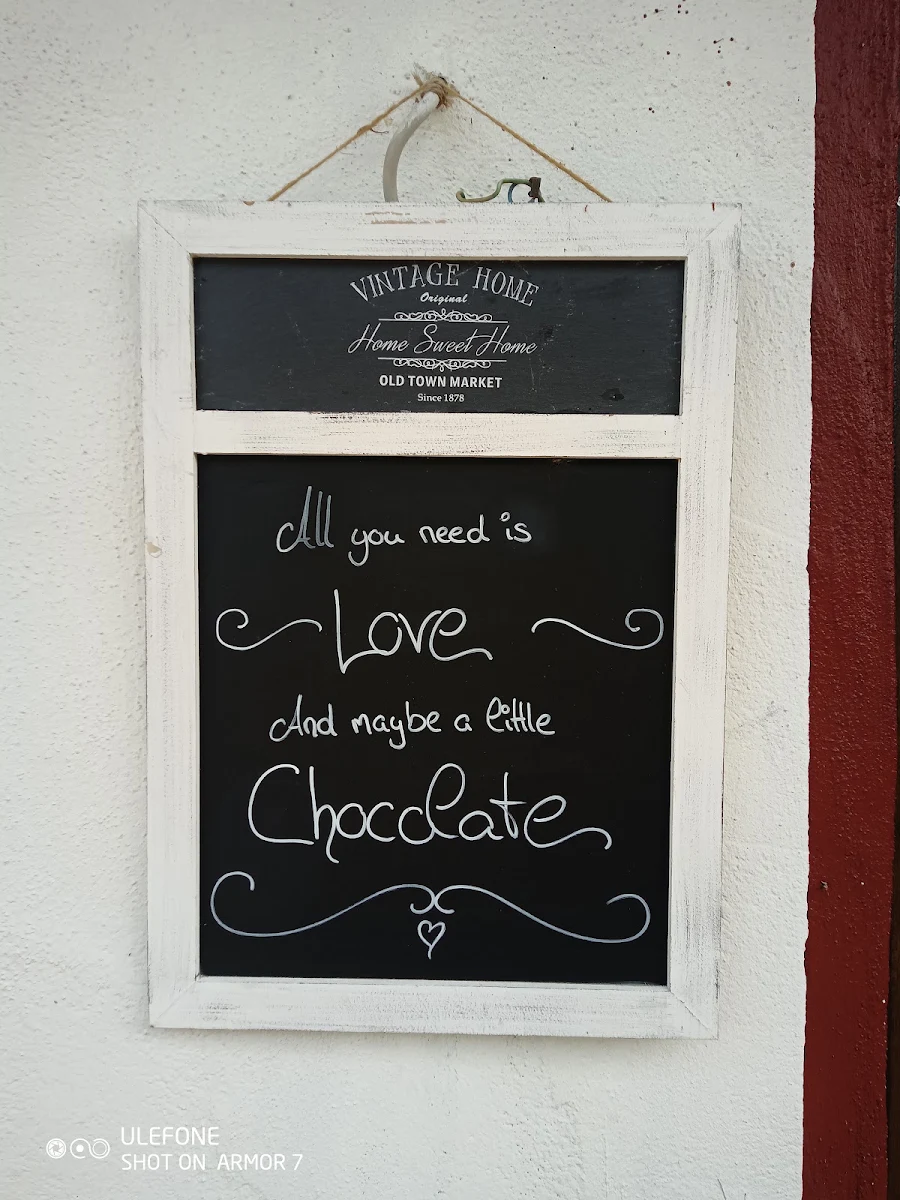 VINTAGE HOME
Original
Home Sweet Home
OLD TOWN MARKET
Since 1878
All you need is
Love
And maybe a little
Chocolate
ULEFONE
SHOT ON ARMOR 7